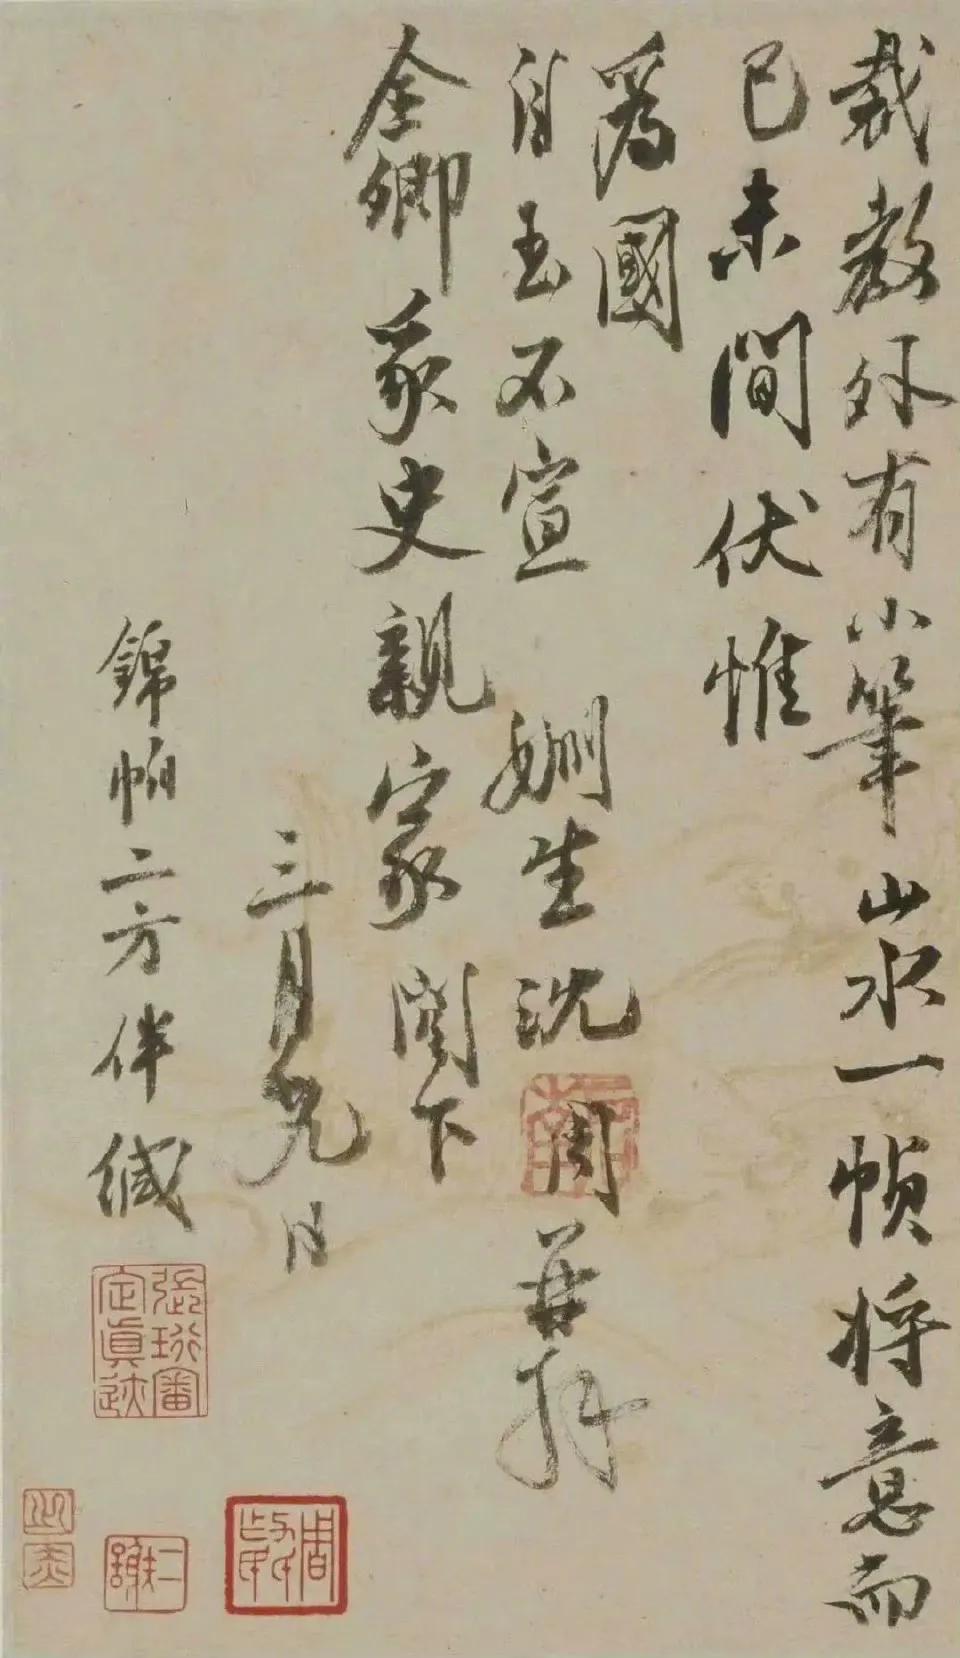 裁教外有小筆山水一幀將意而
已未間伏惟
爲國
自玉不宣 婣生沈周再拜
金卿豸史親家閣下
三月九日
錦帕二方伴緘
張珩審定真跡